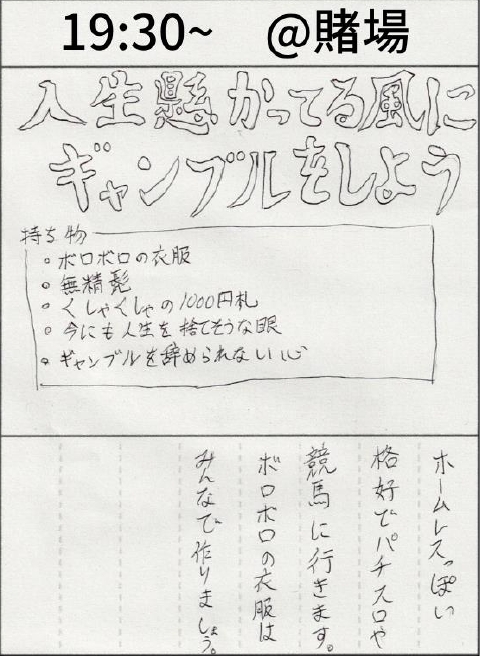 19:30~ @賭場
人生懸かってる風に
ギャンブルをしよう
持ち物
ボロボロの衣服
無精髭
くしゃくしゃの1000円札
今にも人生を捨てそうな眼
ギャンブルを辞められない心
ホームレスっぽい
格好でパチスロや
競馬に行きます。
ボロボロの衣服は
みんなで作りましょう。